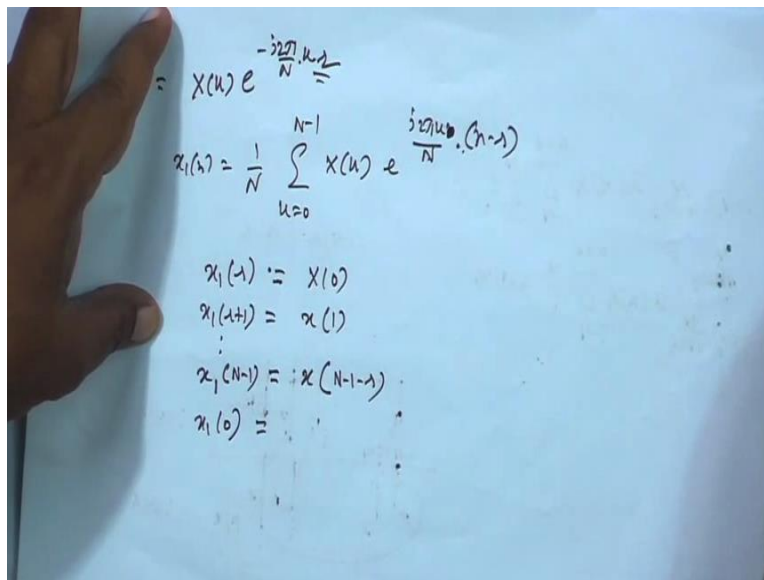 = X(k) e^{-\frac{j2\pi}{N}.kr}
x_1(n) = \frac{1}{N} \sum_{k=0}^{N-1} X(k) e^{\frac{j2\pi k}{N}.(n-r)}
x_1(r) = X(0)
x_1(r+1) = x(1)
⋮
x_1(N-1) = x(N-1-r)
x_1(0) =